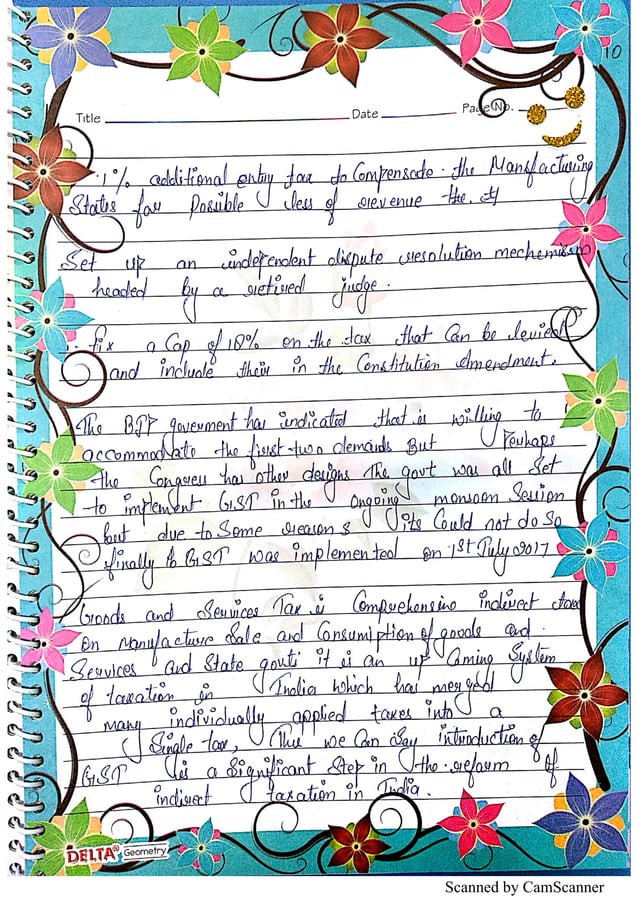 10
Title Date Page No.
1% additional entry tax to Compensate the Manufacturing
States for Possible loss of revenue the
Set up an independent dispute resolution mechemism
headed by a retired judge.
fix a Cap of 18% on the tax that Can be levied
and include their in the Constitution Amendment.
The BJP goverment has indicated that is willing to
accommodate the first two demands But Perhaps
the Congress has other designs The govt was all Set
to implement GST in the ongoing monsoon Session
but due to Some reasons its Could not do so
finally GST was implemented on 1st July 2017
Goods and Services Tax is Comprehensive indirect tax
on Manufacture Sale and Consumiption of goods and
Services and State govt: it is an up Coming System
of taxation in India which has merged
many individually applied taxes into a
Single tax, Thus we Can Say introduction of
GST is a Significant Step in the reform of
indirect taxation in India.
DELTA® Geometry
Scanned by CamScanner